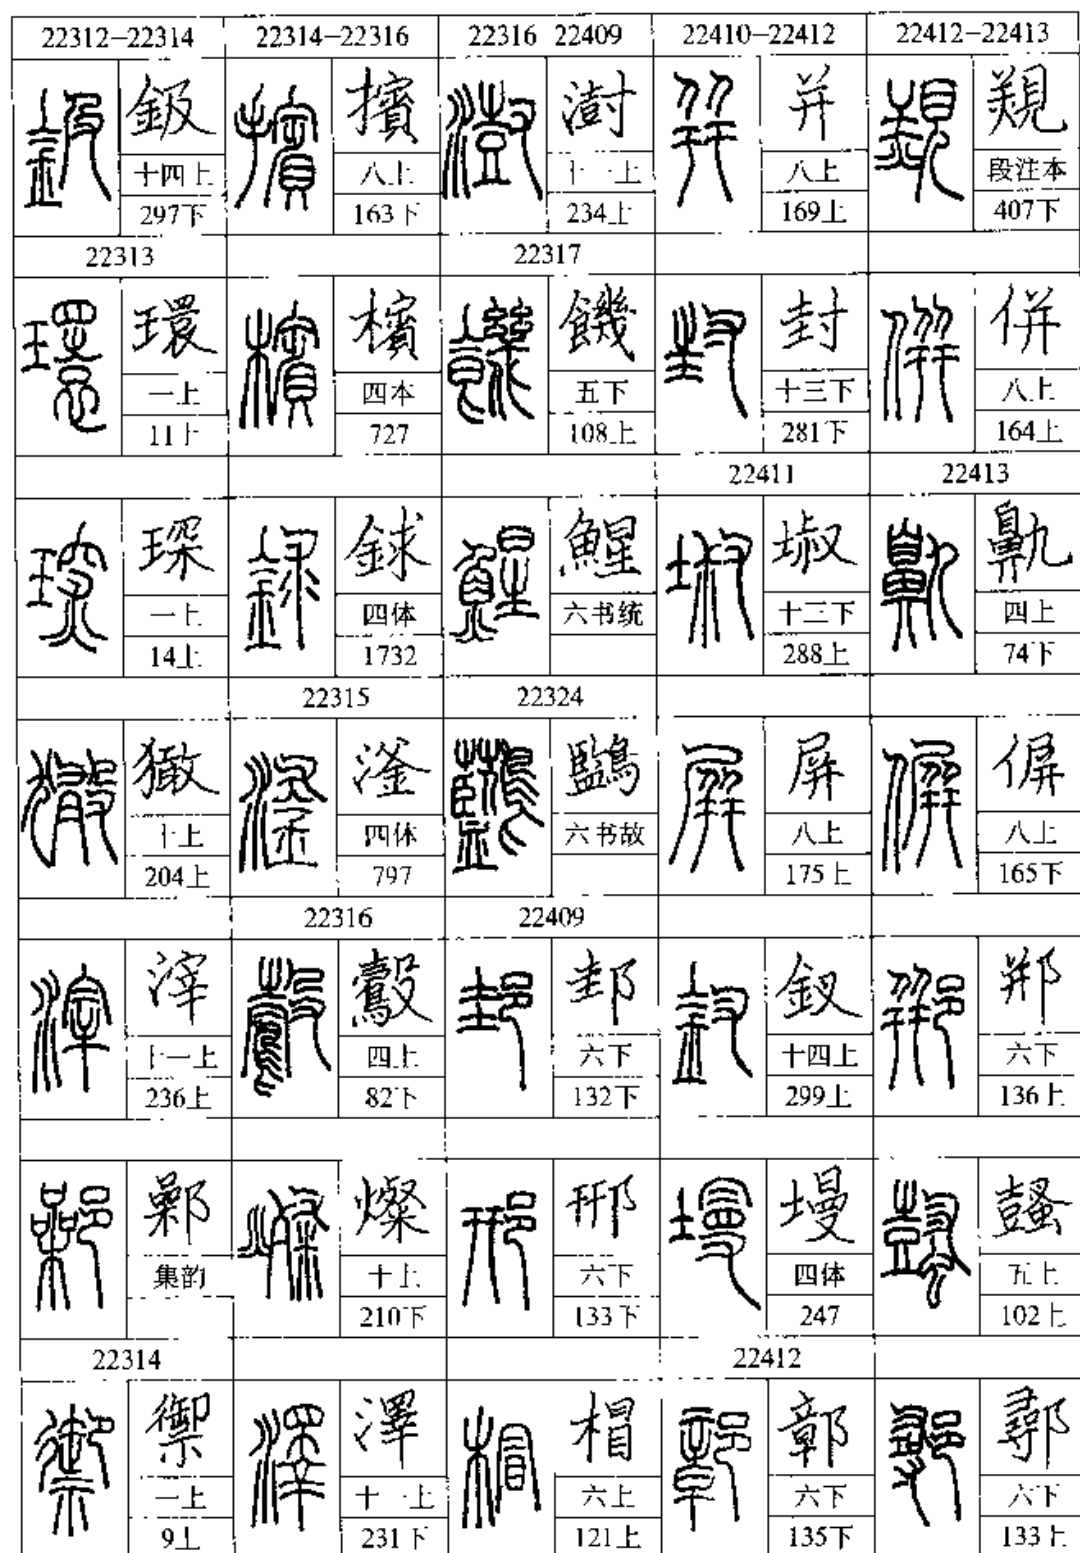 22312–22314
鈒
十四上
297下
22313
環
一上
11上
琛
一上
14上
獥
十上
204上
滓
十一上
236上
鄵
集韵
22314
禦
一上
9上
22314–22316
擯
八上
163下
檳
四本
727
銶
四体
1732
22315
滏
四体
797
22316
鷇
四上
82下
燦
十上
210下
澤
十一上
231下
22316 22409
澍
十一上
234上
22317
饑
五下
108上
鯹
六书统
22324
六书故
22409
邽
六下
132下
邢
六下
133下
椙
六上
121上
22410–22412
并
八上
169上
封
十三下
281下
22411
埱
十三下
288上
屏
八上
175上
釵
十四上
299上
墁
四体
247
22412
鄣
六下
135下
22412–22413
段注本
407下
併
八上
164上
22413
鼽
四上
74下
偋
八上
165下
郱
六下
136上
五上
102上
鄩
六下
133上